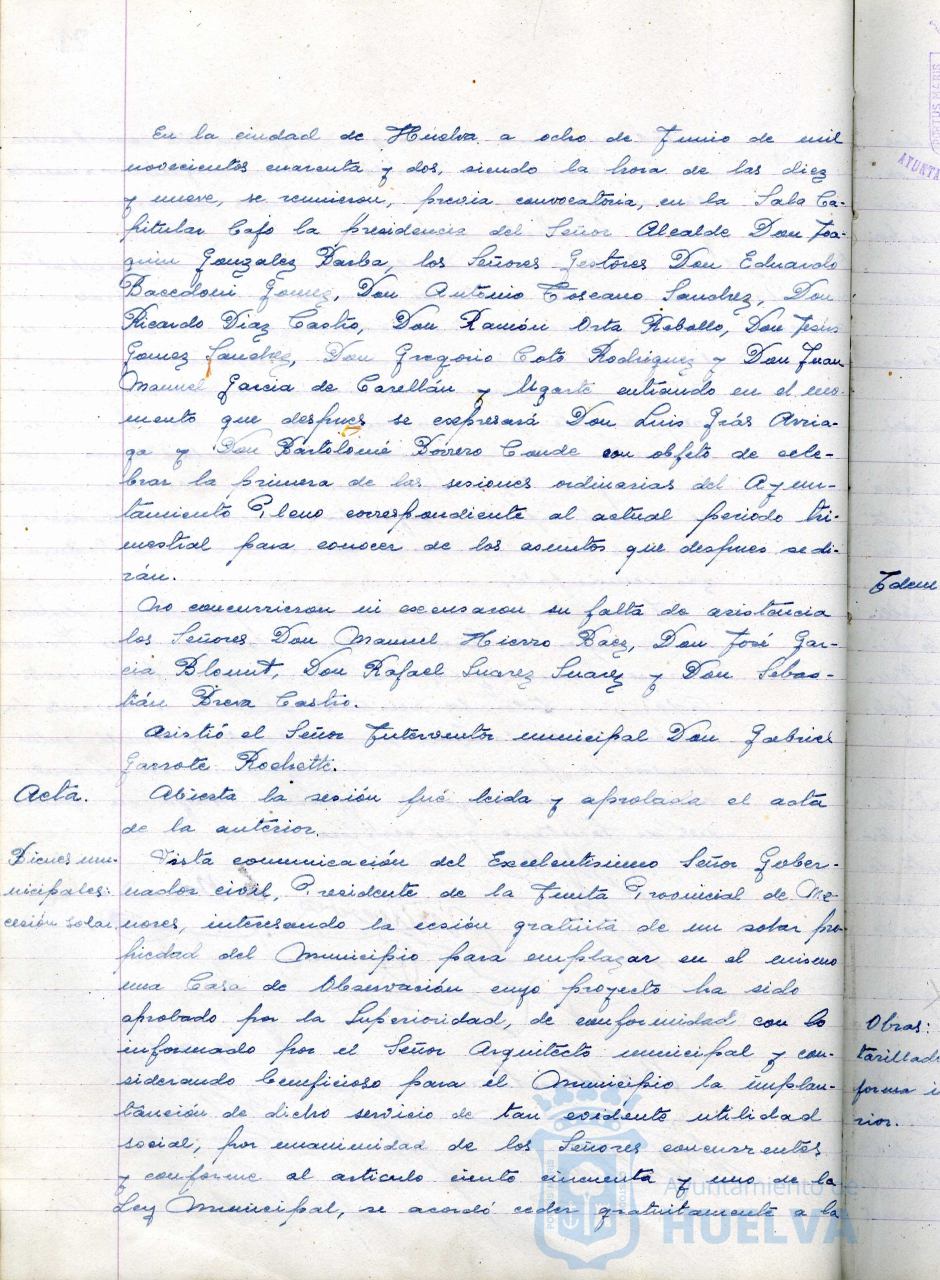 En la ciudad de Huelva a ocho de Junio de mil
novecientos cuarenta y dos, siendo la hora de las diez
y nueve, se reunieron, previa convocatoria, en la Sala Ca-
pitular bajo la presidencia del Señor Alcalde Don Joa-
quin Gonzalez Barba, los Señores Gestores Don Eduardo
Gomez, Don Antonio Toscano Sanchez, Don
Ricardo Diaz Castro, Don Ramón Orta Rebollo, Don Jesús
Gomez Sanchez, Don Gregorio Coto Rodriguez y Don Juan
Manuel Garcia de Carellán y Ugarte entrando en el mo-
mento que despues se expresará Don Luis Grás Arria-
ga y Don Bartolomé Borrero Conde con objeto de cele-
brar la primera de las sesiones ordinarias del Ayun-
tamiento Pleno correspondiente al actual periodo tri-
mestral para conocer de los asuntos que despues se di-
rán.
No concurrieron ni excusaron su falta de asistencia
los Señores Don Manuel Hierro Baez, Don José Gar-
cia Blount, Don Rafael Suarez Suarez y Don Sebas-
tián Breva Castro.
Asistió el Señor Interventor municipal Don Gabriel
Garrote Rochette.
Acta. Abierta la sesión fué leida y aprobada el acta
de la anterior.
Bienes mu-
nicipales:
cesión solar.
Vista comunicación del Excelentisimo Señor Gober-
nador civil, Presidente de la Junta Provincial de Me-
nores, interesando la cesión gratuita de un solar pro-
piedad del Municipio para emplazar en el mismo
una Casa de Observación cuyo proyecto ha sido
aprobado por la Superioridad, de conformidad con lo
informado por el Señor Arquitecto municipal y con-
siderando beneficioso para el Municipio la implan-
tanción de dicho servicio de tan evidente utilidad
social, por unanimidad de los Señores concurrentes
y conforme al articulo ciento cincuenta y uno de la
Ley Municipal, se acordó ceder gratuitamente a la
Idem
Obras:
forma i
rior.
AYUNTA
Ayuntamiento de
HUELVA